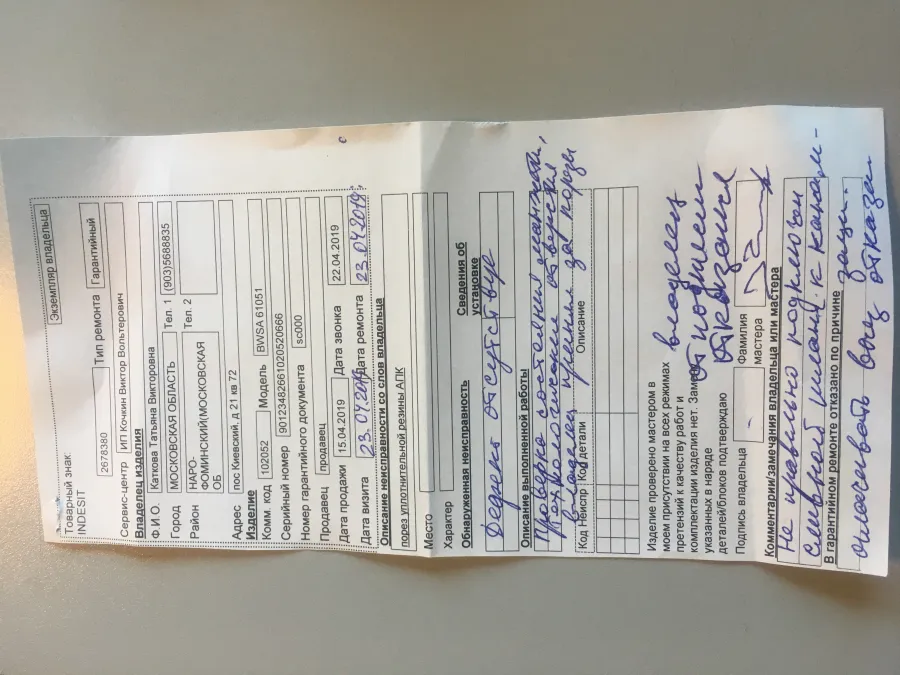 Экземпляр владельца
Товарный знак
INDESIT
2678380 Тип ремонта Гарантийный
Сервис-центр ИП Кочкин Виктор Вольтерович
Владелец изделия
Ф.И.О. Каткова Татьяна Викторовна
Город МОСКОВСКАЯ ОБЛАСТЬ Тел. 1 (903)5688835
Район НАРО-ФОМИНСКИЙ(МОСКОВСКАЯ ОБ Тел. 2
Адрес пос Киевский, д 21 кв 72
Изделие
Комм. код 102052 Модель BWSA 61051
Серийный номер 90123482661020520666
Номер гарантийного документа sc000
Продавец продавец
Дата продажи 15.04.2019 Дата звонка 22.04.2019
Дата визита 23.04.2019 Дата ремонта 23.04.2019
Описание неисправности со слов владельца
порез уплотнительной резины АПК
Место
Характер
Обнаруженная неисправность Сведения об установке
Дефект отсутствуе
Описание выполненной работы
Проверка состояния манжеты,
технологические отверстия
владелец принял за порезы
Код Неиспр Код детали Описание
Изделие проверено мастером в
моем присутствии на всех режимах
претензий к качеству работ и
комплектации изделия нет. Замену
указанных в наряде
деталей/блоков подтверждаю
владелец
от подписи
отказался
Подпись владельца - Фамилия мастера
Комментарии/замечания владельца или мастера
Не правильно подключен
сливной шланг к канали-
В гарантийном ремонте отказано по причине
зации.
оплачивать выезд отказ